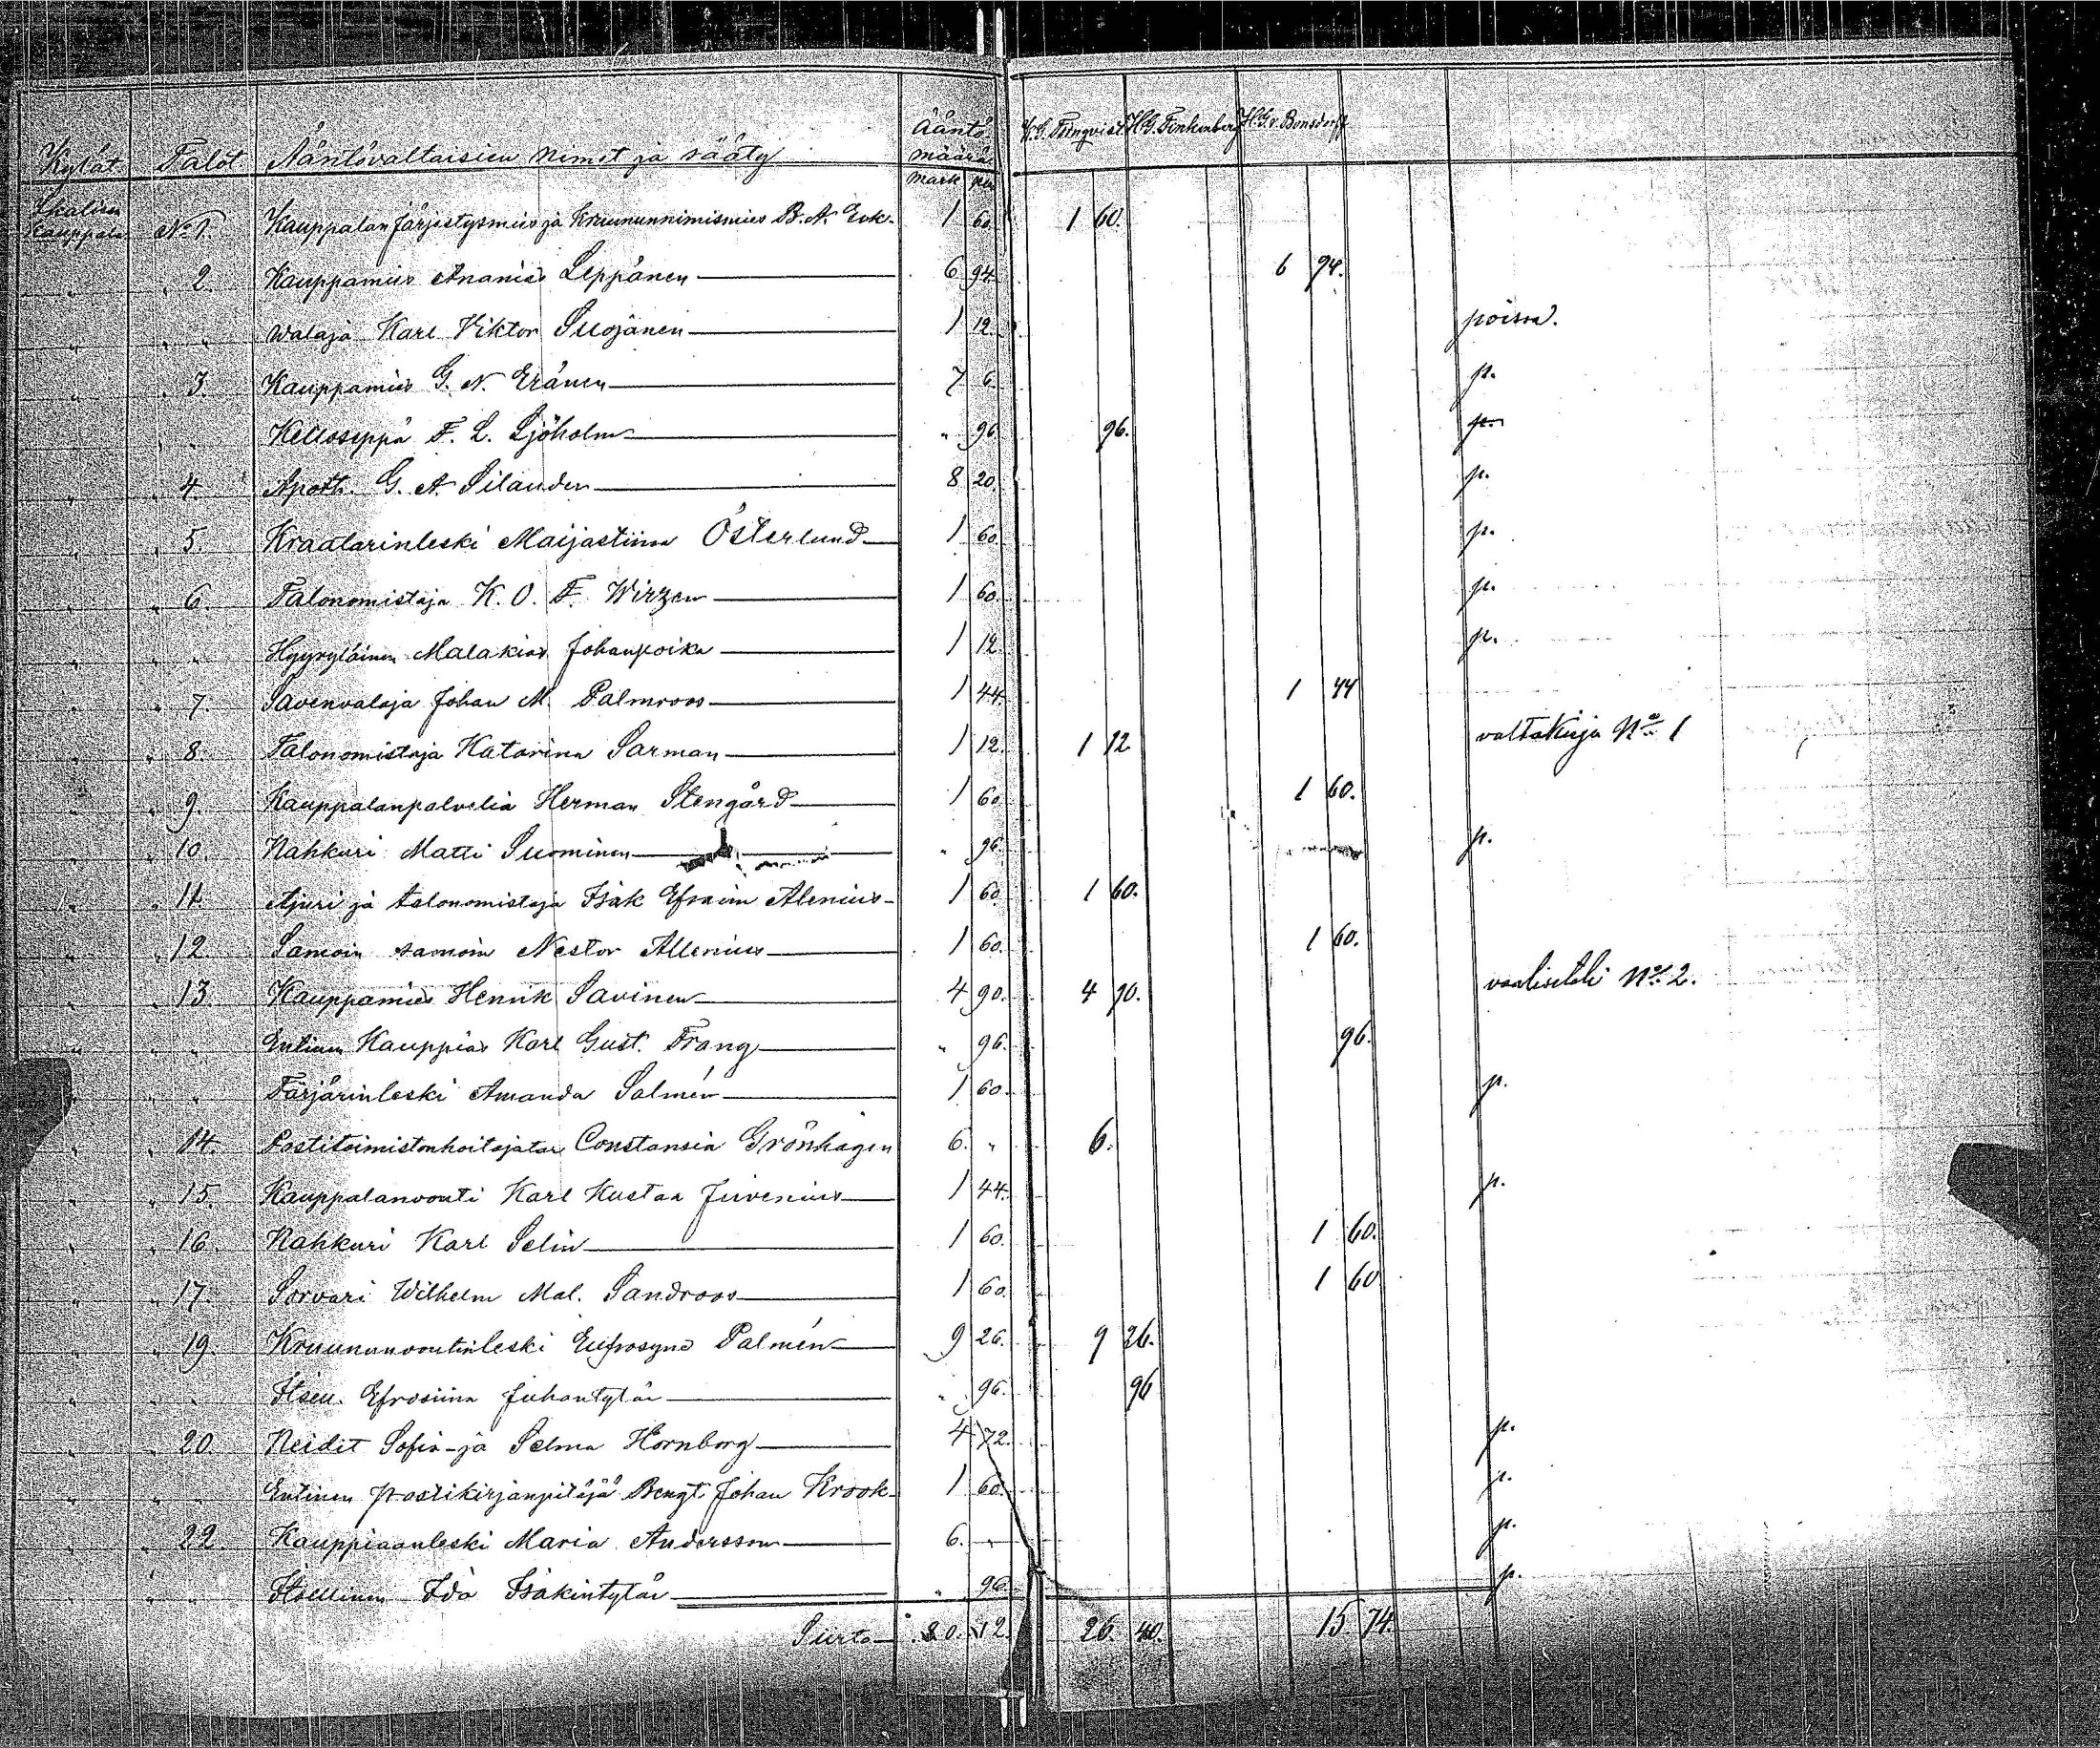 Kylät Talot Ääntövaltaisien nimet ja sääty Ääntö määrä H. G. Fenkenberg H. G. v. Bonsdorff
mark pen
Ikalisen kauppala No 1. Kauppalan järjestysmies ja Kruununnimismies B. A. Eek. 1 60. 1 60.
" " 2. Kauppamies Ananias Leppänen 6 94 6 94.
" " " Walaja Karl Viktor Suojanen 1 12. poissa.
" " 3. Kauppamies G. N. Eränen 7 6. p.
" " Kelloseppä F. L. Sjöholm " 96 96. p.
" " 4 Apoth. G. A. Silander 8 20. p.
" " 5. Kraatarinleski Maijastiina Österlund 1 60. p.
" " 6. Talonomistaja K. O. F. Wirzen 1 60. p.
" " " Hyyryläinen Malakias Johanpoika 1 12. p.
" " 7. Savenvalaja Johan M. Palmroos 1 44. 1 44
" " 8. Talonomistaja Katarina Sarman 1 12. 1 12 valtakirja No 1
" " 9. Kauppalanpalvelia Herman Stengård 1 60. 1 60.
" " 10. Nahkuri Matti Suominen " 96. p.
" " 11. Ajuri ja talonomistaja Isak Efraim Alenius 1 60. 1 60.
" " 12. Samoin samoin Nestor Allenius 1 60. 1 60.
" " 13. Kauppamies Henrik Savinen 4 90. 4 90. No 2.
" " " Entinen Kauppias Karl Gust. Frang " 96. 96.
" " " Färjärinleski Amanda Salmén 1 60. p.
" " 14. Postitoimistonhoitajatar Constansia Grönhagen 6. " 6.
" " 15. Kauppalanvouti Karl Kustaa Juvenius 1 44. p.
" " 16. Nahkuri Karl Selin 1 60. 1 60.
" " 17. Sorvari Wilhelm Mal. Sandroos 1 60. 1 60
" " 19. Kruununvoutinleski Eufrosyne Palmén 9 26. 9 26.
" " " Itsell. Efrosiina Juhantytär " 96. 96
" " 20. Neidit Sofia ja Selma Hornborg 4 72. p.
" " " Entinen postikirjanpitäjä Bengt Johan Krook 1 60. p.
" " 22. Kauppiaanleski Maria Andersson 6. " p.
" " " Itsellinen Ida Isakintytär " 96 p.
Siirto 80. 12. 26. 40. 15. 74.